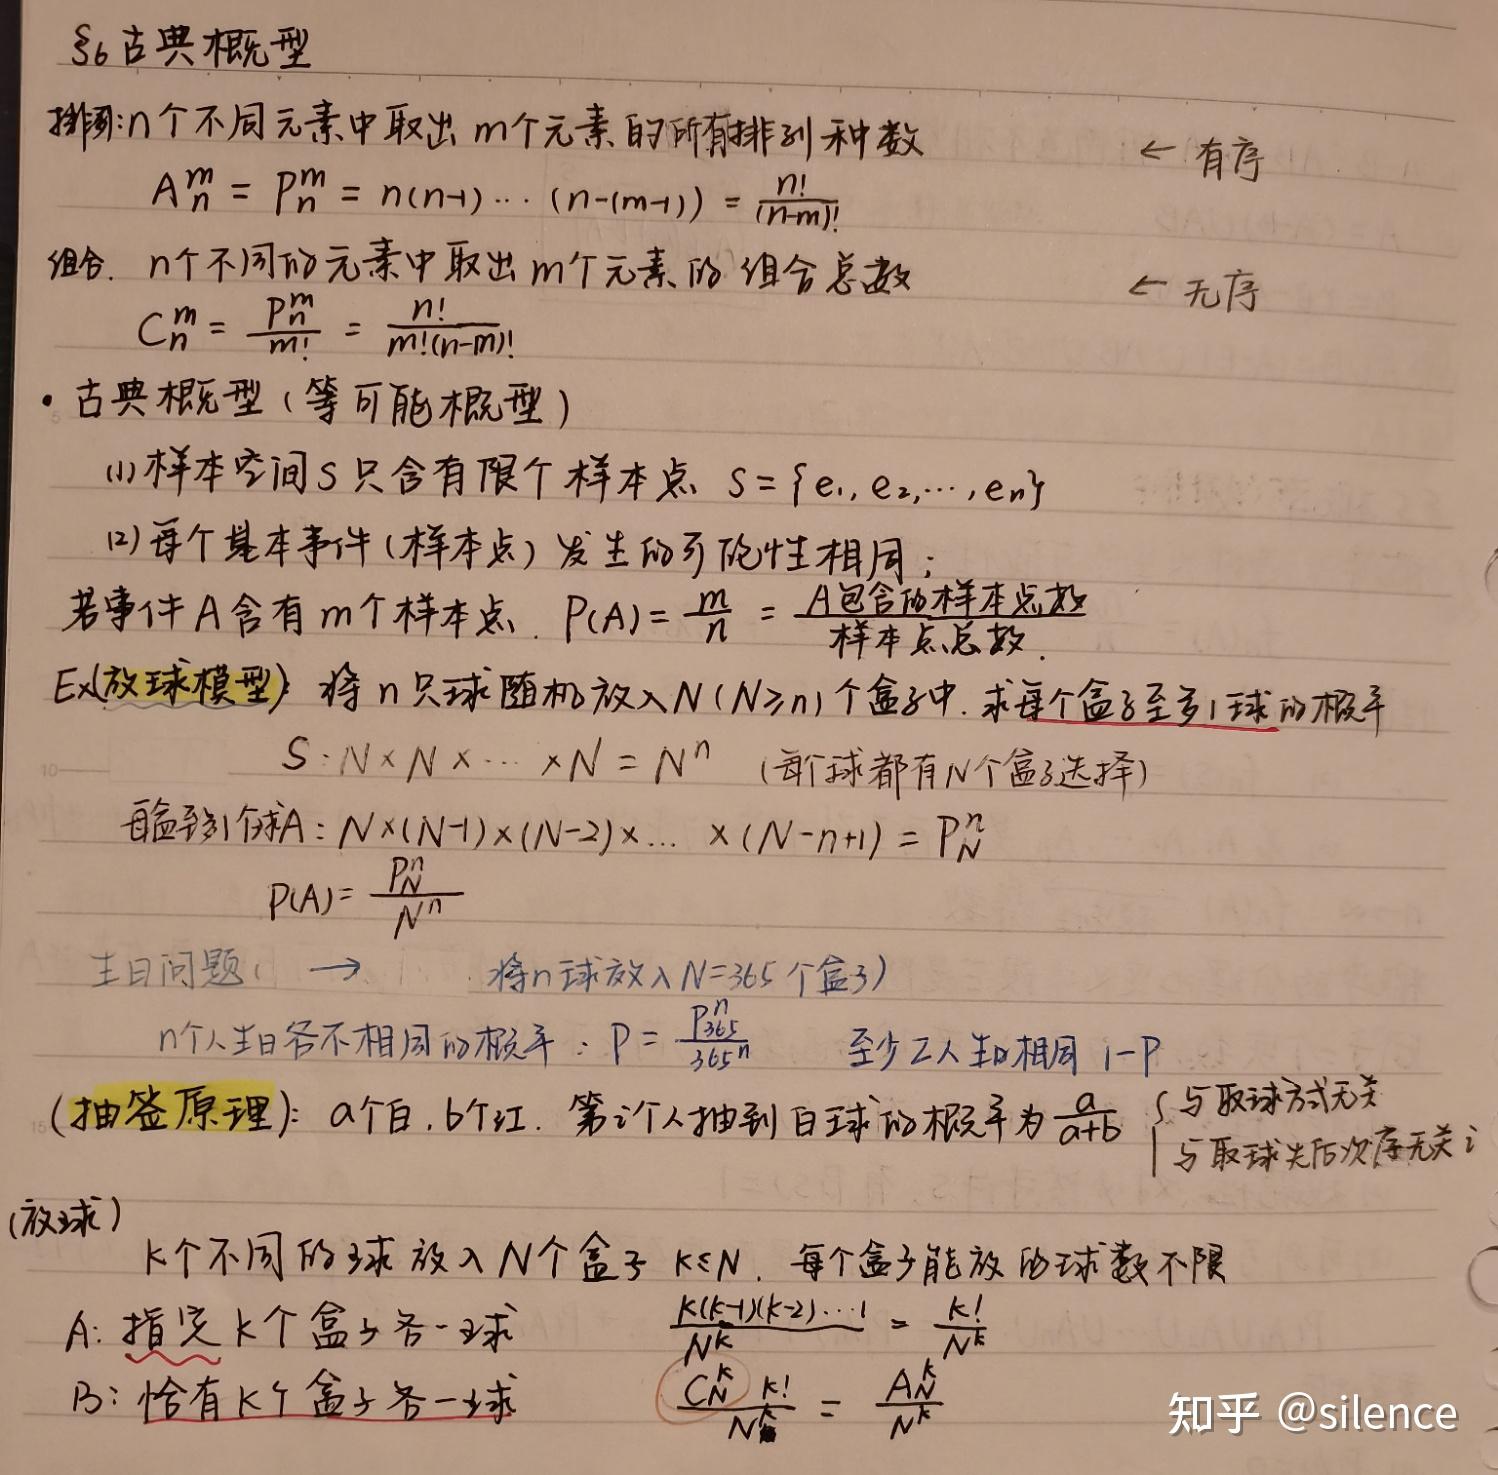 §6 古典概型
排列:n个不同元素中取出m个元素的所有排列种数 ← 有序
A_n^m = P_n^m = n(n-1)···(n-(m-1)) = n!/(n-m)!
组合. n个不同的元素中取出m个元素的组合总数 ← 无序
C_n^m = P_n^m/m! = n!/m!(n-m)!
·古典概型(等可能概型)
(1)样本空间S只含有限个样本点 S={e₁,e₂,···,eₙ}
(2)每个基本事件(样本点)发生的可能性相同;
若事件A含有m个样本点. P(A)=m/n=A包含的样本点数/样本点总数.
Ex(放球模型): 将n只球随机放入N(N≥n)个盒子中.求每个盒子至多1球的概率
S:N×N×···×N=Nⁿ (每个球都有N个盒子选择)
每盒至多1个球A:N×(N-1)×(N-2)×...×(N-n+1)=P_N^n
P(A)=P_N^n/N^n
生日问题( → 将n球放入N=365个盒子)
n个人生日各不相同的概率:P=P_365^n/365^n 至少2人生日相同 1-P
(抽签原理): a个白.b个红. 第i个人抽到白球的概率为a/(a+b) {与取球方式无关
与取球先后次序无关i
(放球)
K个不同的球放入N个盒子 K≤N. 每个盒子能放的球数不限
A:指定K个盒子各一球 K(K-1)(K-2)···1/N^K = K!/N^K
B:恰有K个盒子各一球 C_N^K K!/N^K = A_N^K/N^K
知乎 @silence